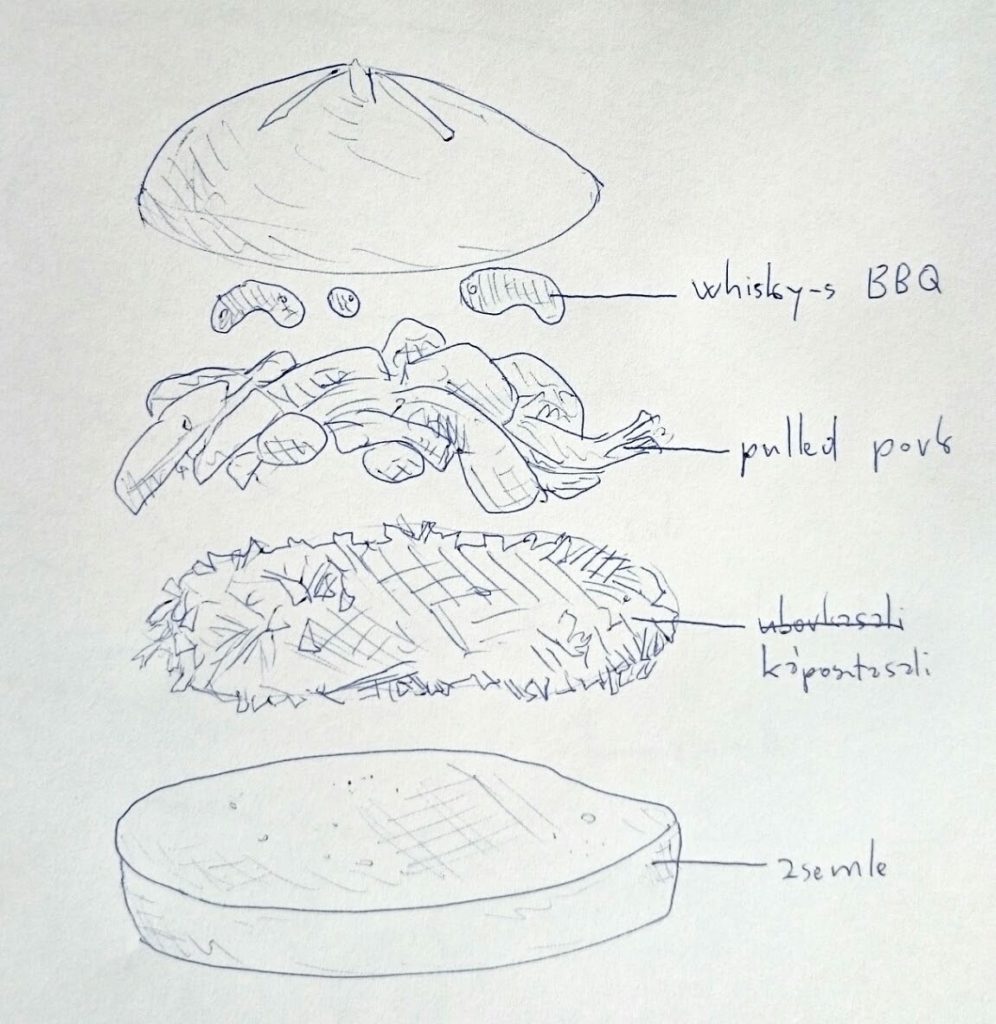 whisky-s BBQ
pulled pork
uborkasali
káposztasali
zsemle